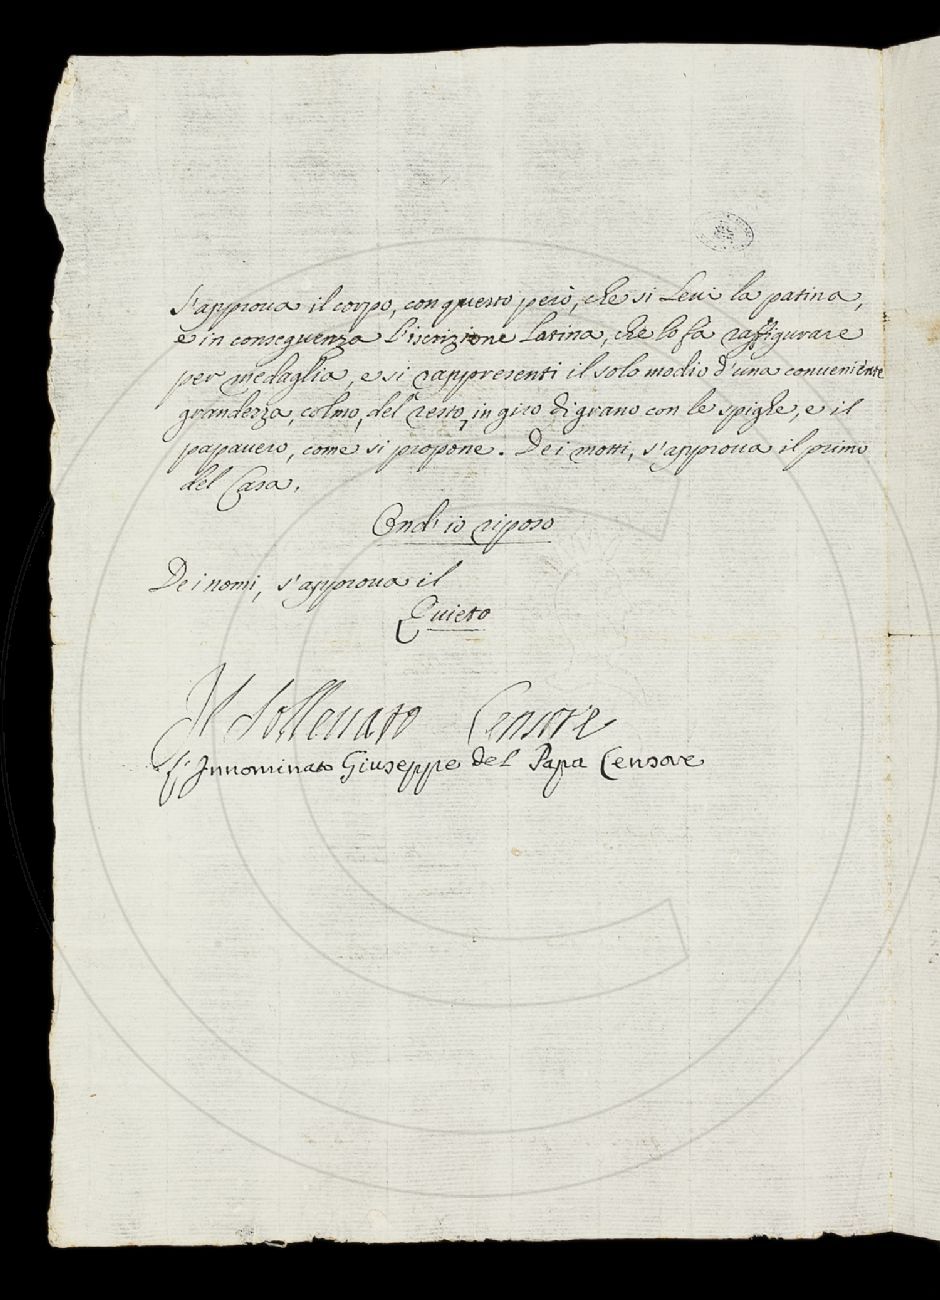 S'approva il corpo, con questo però, che si Levi la patina,
e in conseguenza l'iscrizione Latina, che lo fà raffigurare
per medaglia, e si rappresenti il solo modio d'una conveniente
grandezza, colmo, del resto, in giro di grano con le spighe, e il
papavero, come si propone. Dei motti, s'approva il primo
del Casa.
Ond' io riposo
Dei nomi, s'approva il
Quieto
Il Sollevato Censore
L'Innominato Giuseppe del Papa Censore